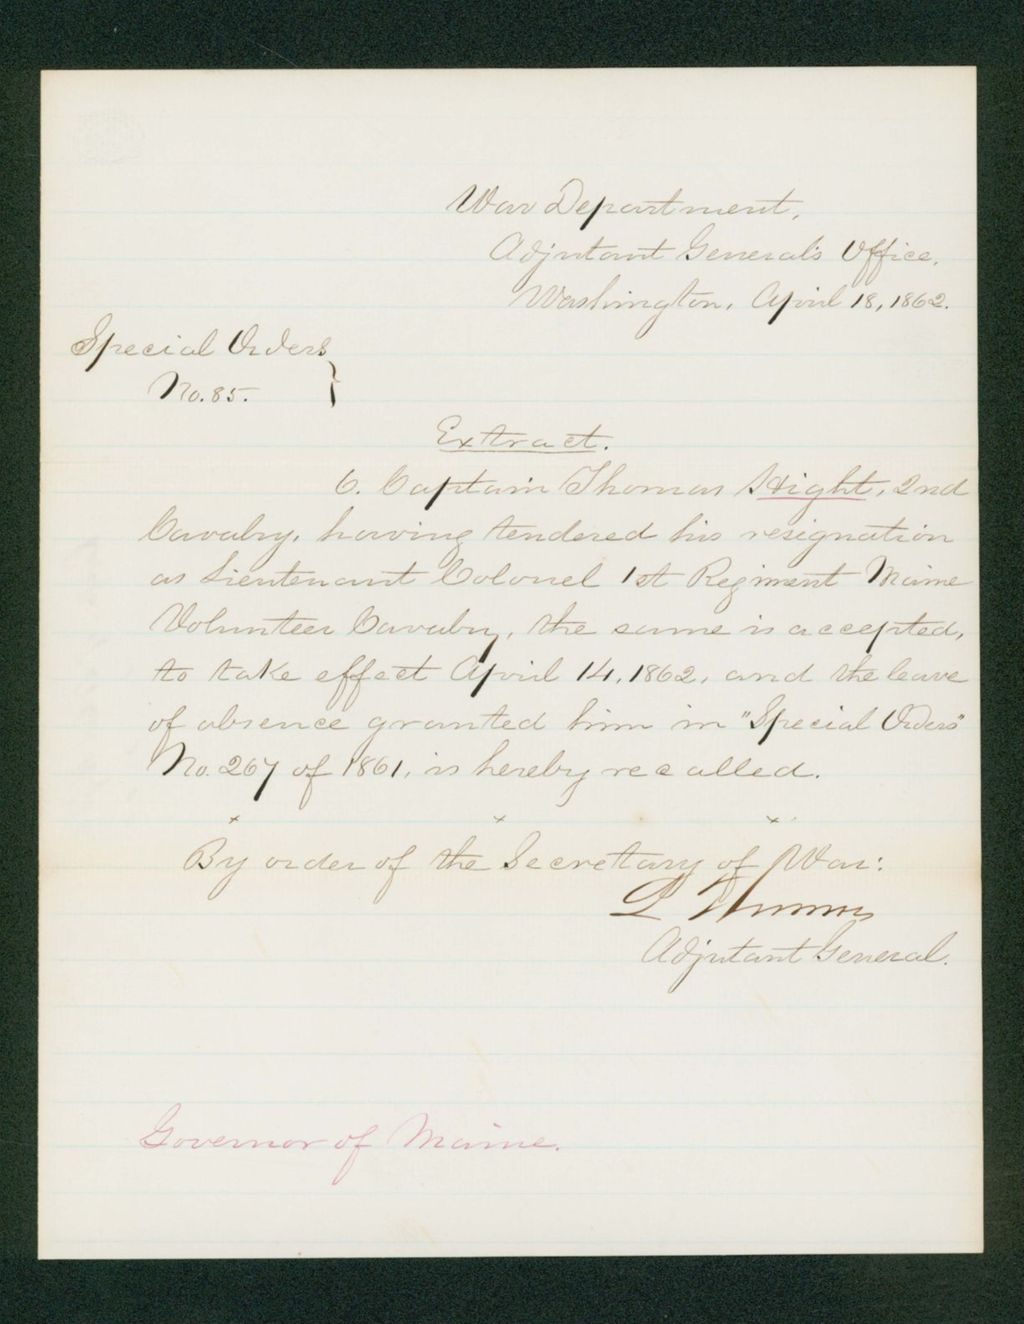 War Department,
Adjutant General's Office,
Washington, April 18, 1862.
Special Orders
No. 85. }
Extract.
6. Captain Thomas Hight, 2nd
Cavalry, having tendered his resignation
as Lieutenant Colonel 1st Regiment Maine
Volunteer Cavalry, the same is accepted,
to take effect April 14, 1862, and the leave
of absence granted him in "Special Orders"
No. 267 of 1861, is hereby recalled.
x x x
By order of the Secretary of War:
L Thomas
Adjutant General.
Governor of Maine.